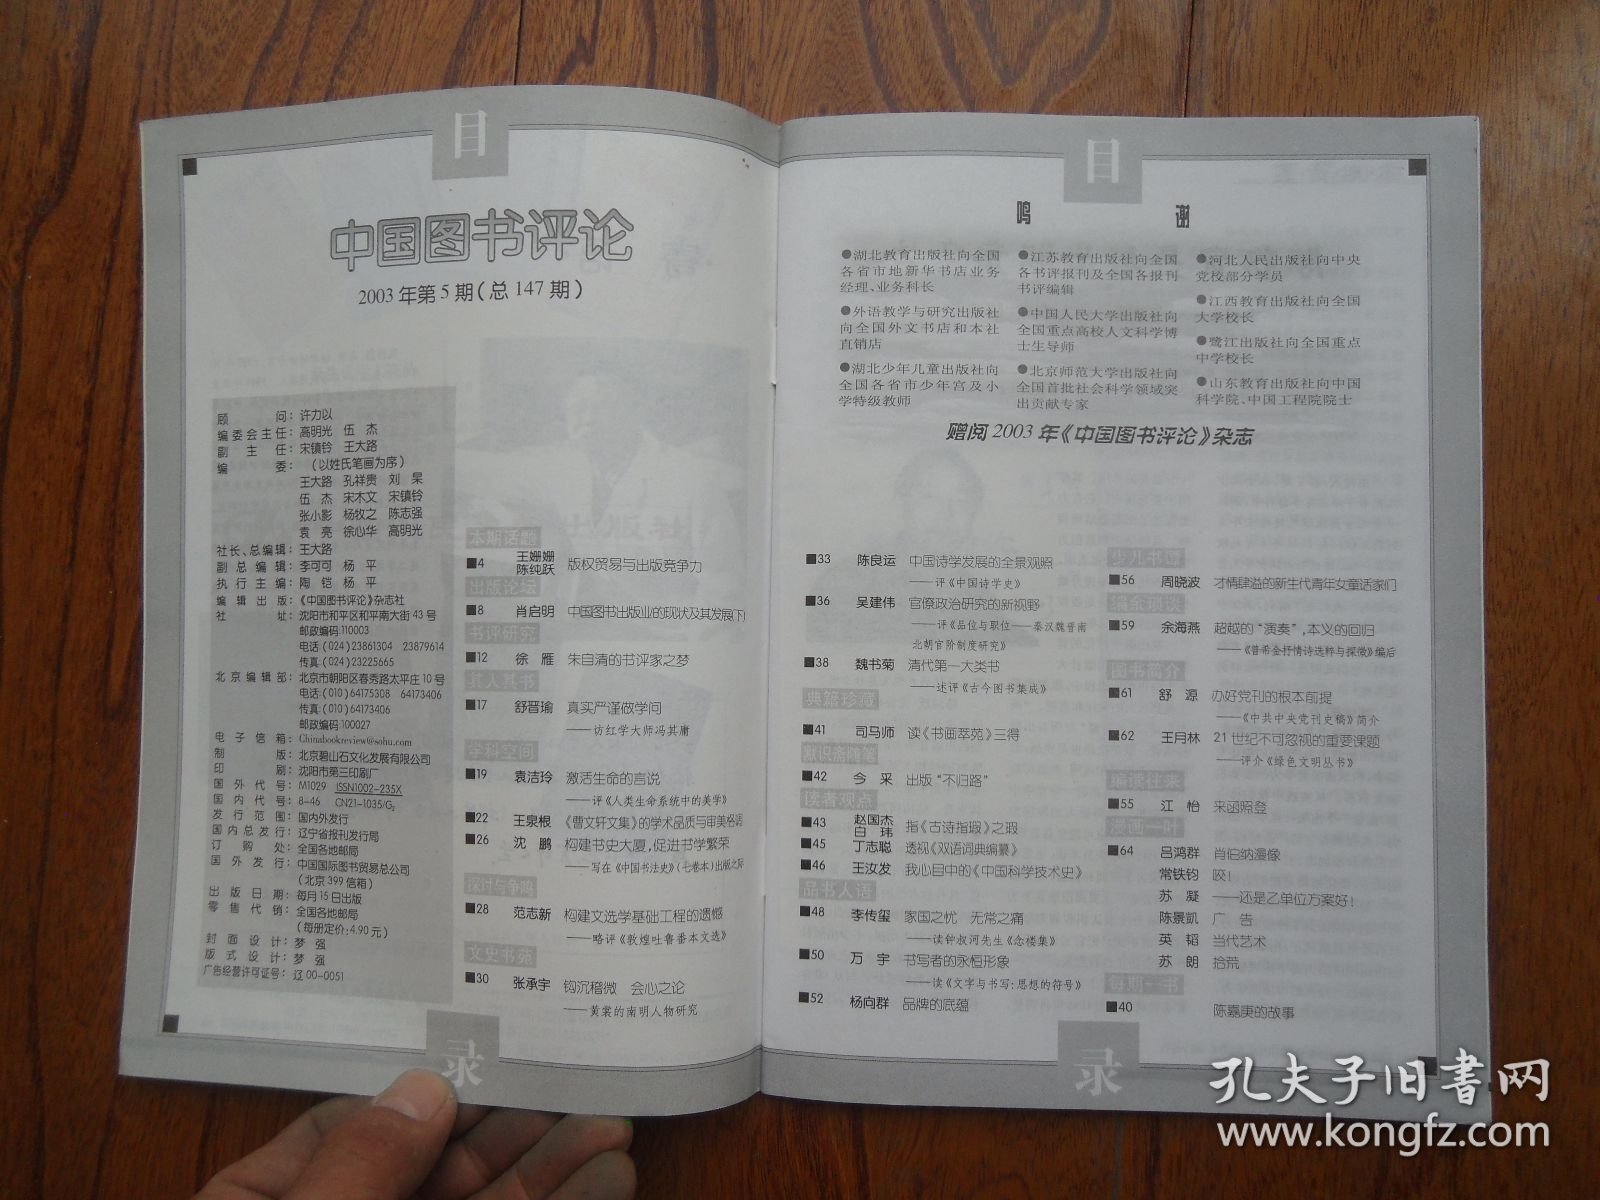 目
中国图书评论
2003年第5期(总147期)
顾问：许力以
编委会主任：高明光 伍杰
副主任：宋镇铃 王大路
编委：(以姓氏笔画为序)
王大路 孔祥贵 刘杲
伍杰 宋木文 宋镇铃
张小影 杨牧之 陈志强
袁亮 徐心华 高明光
社长、总编辑：王大路
副总编辑：李可可 杨平
执行主编：陶铠 杨平
编辑出版：《中国图书评论》杂志社
社址：沈阳市和平区和平南大街43号
邮政编码:110003
电话(024)23861304 23879614
传真:(024)23225665
北京编辑部：北京市朝阳区春秀路太平庄10号
电话:(010)64175308 64173406
传真:(010)64173406
邮政编码:100027
电子信箱：Chinabookreview@sohu.com
制版：北京碧山石文化发展有限公司
印刷：沈阳市第三印刷厂
国外代号：M1029 ISSN1002-235X
国内代号：8-46 CN21-1035/G2
发行范围：国内外发行
国内总发行：辽宁省报刊发行局
订购处：全国各地邮局
国外发行：中国国际图书贸易总公司
(北京399信箱)
出版日期：每月15日出版
零售代销：全国各地邮局
(每册定价:4.90元)
封面设计：梦强
版式设计：梦强
广告经营许可证号：辽00-0051
本期话题
■4 王姗姗 陈纯跃 版权贸易与出版竞争力
出版论坛
■8 肖启明 中国图书出版业的现状及其发展(下)
书评研究
■12 徐雁 朱自清的书评家之梦
其人其书
■17 舒晋瑜 真实严谨做学问
——访红学大师冯其庸
学科空间
■19 袁洁玲 激活生命的言说
——评《人类生命系统中的美学》
■22 王泉根 《曹文轩文集》的学术品质与审美格调
■26 沈鹏 构建书史大厦,促进书学繁荣
——写在《中国书法史》(七卷本)出版之际
探讨与争鸣
■28 范志新 构建文选学基础工程的遗憾
——略评《敦煌吐鲁番本文选》
文史书苑
■30 张承宇 钩沉稽微 会心之论
——黄裳的南明人物研究
录
目
鸣谢
●湖北教育出版社向全国
各省市地新华书店业务
经理、业务科长
●外语教学与研究出版社
向全国外文书店和本社
直销店
●湖北少年儿童出版社向
全国各省市少年宫及小
学特级教师
●江苏教育出版社向全国
各书评报刊及全国各报刊
书评编辑
●中国人民大学出版社向
全国重点高校人文科学博
士生导师
●北京师范大学出版社向
全国首批社会科学领域突
出贡献专家
●河北人民出版社向中央
党校部分学员
●江西教育出版社向全国
大学校长
●鹭江出版社向全国重点
中学校长
●山东教育出版社向中国
科学院、中国工程院院士
赠阅2003年《中国图书评论》杂志
■33 陈良运 中国诗学发展的全景观照
——评《中国诗学史》
■36 吴建伟 官僚政治研究的新视野
——评《品位与职位——秦汉魏晋南
北朝官阶制度研究》
■38 魏书菊 清代第一大类书
——述评《古今图书集成》
典籍珍藏
■41 司马师 读《书画萃苑》三得
默识斋随笔
■42 今采 出版“不归路”
读者观点
■43 赵国杰 白玮 指《古诗指瑕》之瑕
■45 丁志聪 透视《双语词典编纂》
■46 王汝发 我心目中的《中国科学技术史》
品书人语
■48 李传玺 家国之忧 无常之痛
——读钟叔河先生《念楼集》
■50 万宇 书写者的永恒形象
——读《文字与书写:思想的符号》
■52 杨向群 品牌的底蕴
少儿书谭
■56 周晓波 才情肆溢的新生代青年女童话家们
编余琐谈
■59 余海燕 超越的“演奏”,本义的回归
——《普希金抒情诗选粹与探微》编后
图书简介
■61 舒源 办好党刊的根本前提
——《中共中央党刊史稿》简介
■62 王月林 21世纪不可忽视的重要课题
——评介《绿色文明丛书》
编读往来
■55 江怡 来函照登
漫画一叶
■64 吕鸿群 肖伯纳漫像
常铁钧 咬!
苏凝 ——还是乙单位方案好!
陈景凯 广告
英韬 当代艺术
苏朗 拾荒
每期一书
■40 陈嘉庚的故事
录
孔夫子旧书网
www.kongfz.com